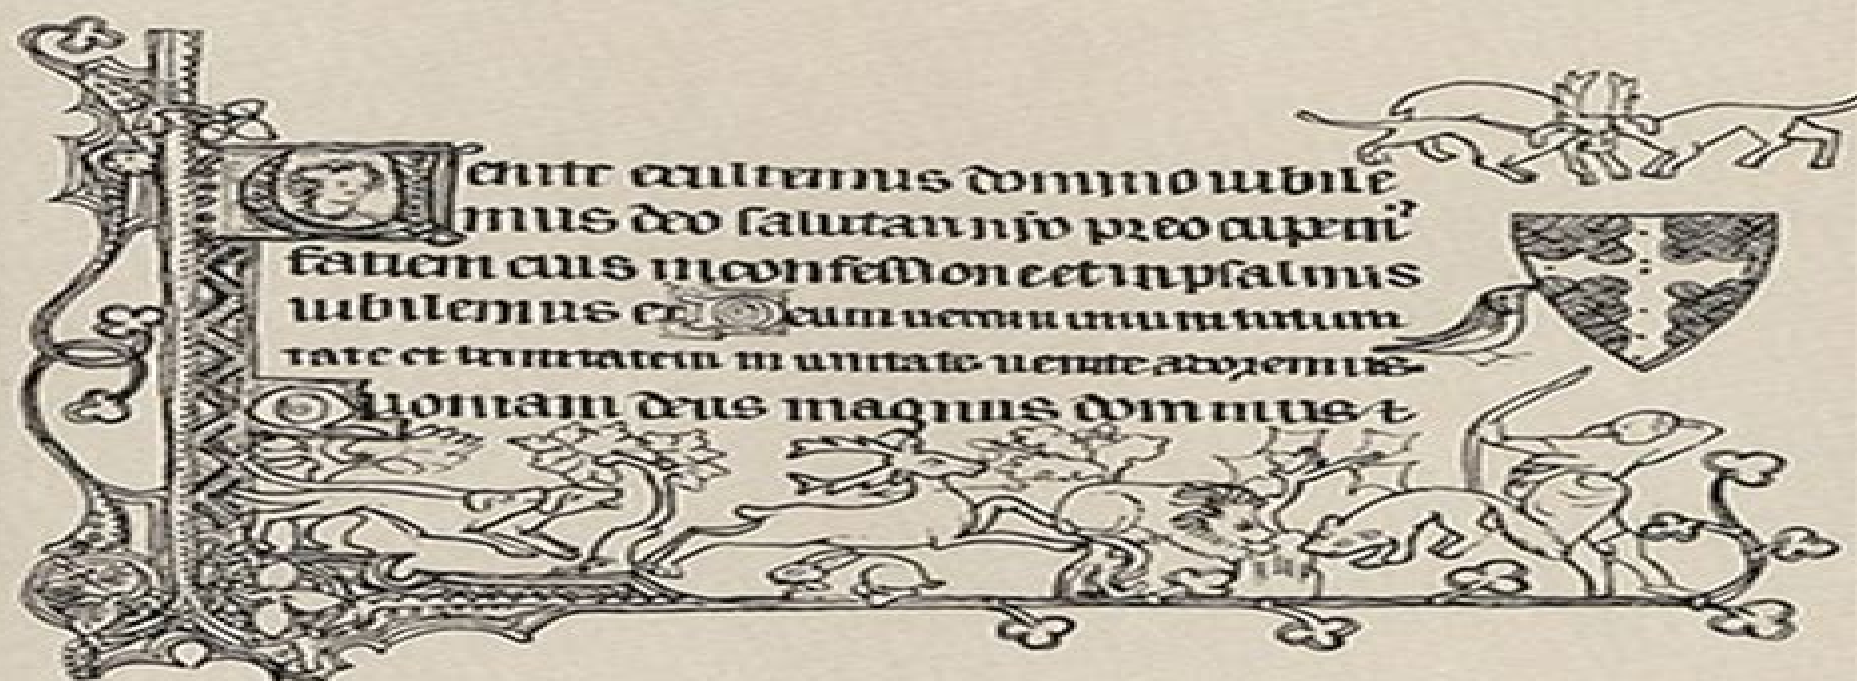 Uenite exultemus domino iubile
mus deo salutari preocupem'
faciem eius in confessione et in psalmis
iubilemus ei Deum uerum unum in trini
tate et trinitatem in unitate uenite adoremus.
Quoniam deus magnus dominus t